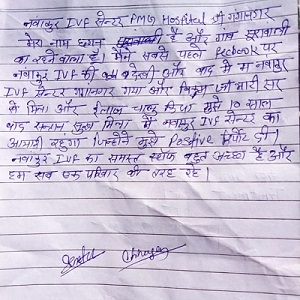 नवाकुर IVF सेन्टर PMG Hospital श्री गंगानगर
मेरा नाम छगन है और गांव सूरावाली
का रहने वाला है। मेने सबसे पहले Facbook पर
नवाकुर IVF की देखी और बाद में म नवाकुर
IVF सेन्टर गंगानगर गया और
से मिला और ईलाज चालू किया मुझे 10 साल
बाद सन्तान सुख मिला में नवाकुर IVF सेन्टर का
आभारी रहुगा जिन्होने मुझे Postive रिपोर्ट दी।
नवाकुर IVF का समस्त स्टॉफ बहुत अच्छा है और
हम सब एक परिवार की तरह रहे।
Chhagan